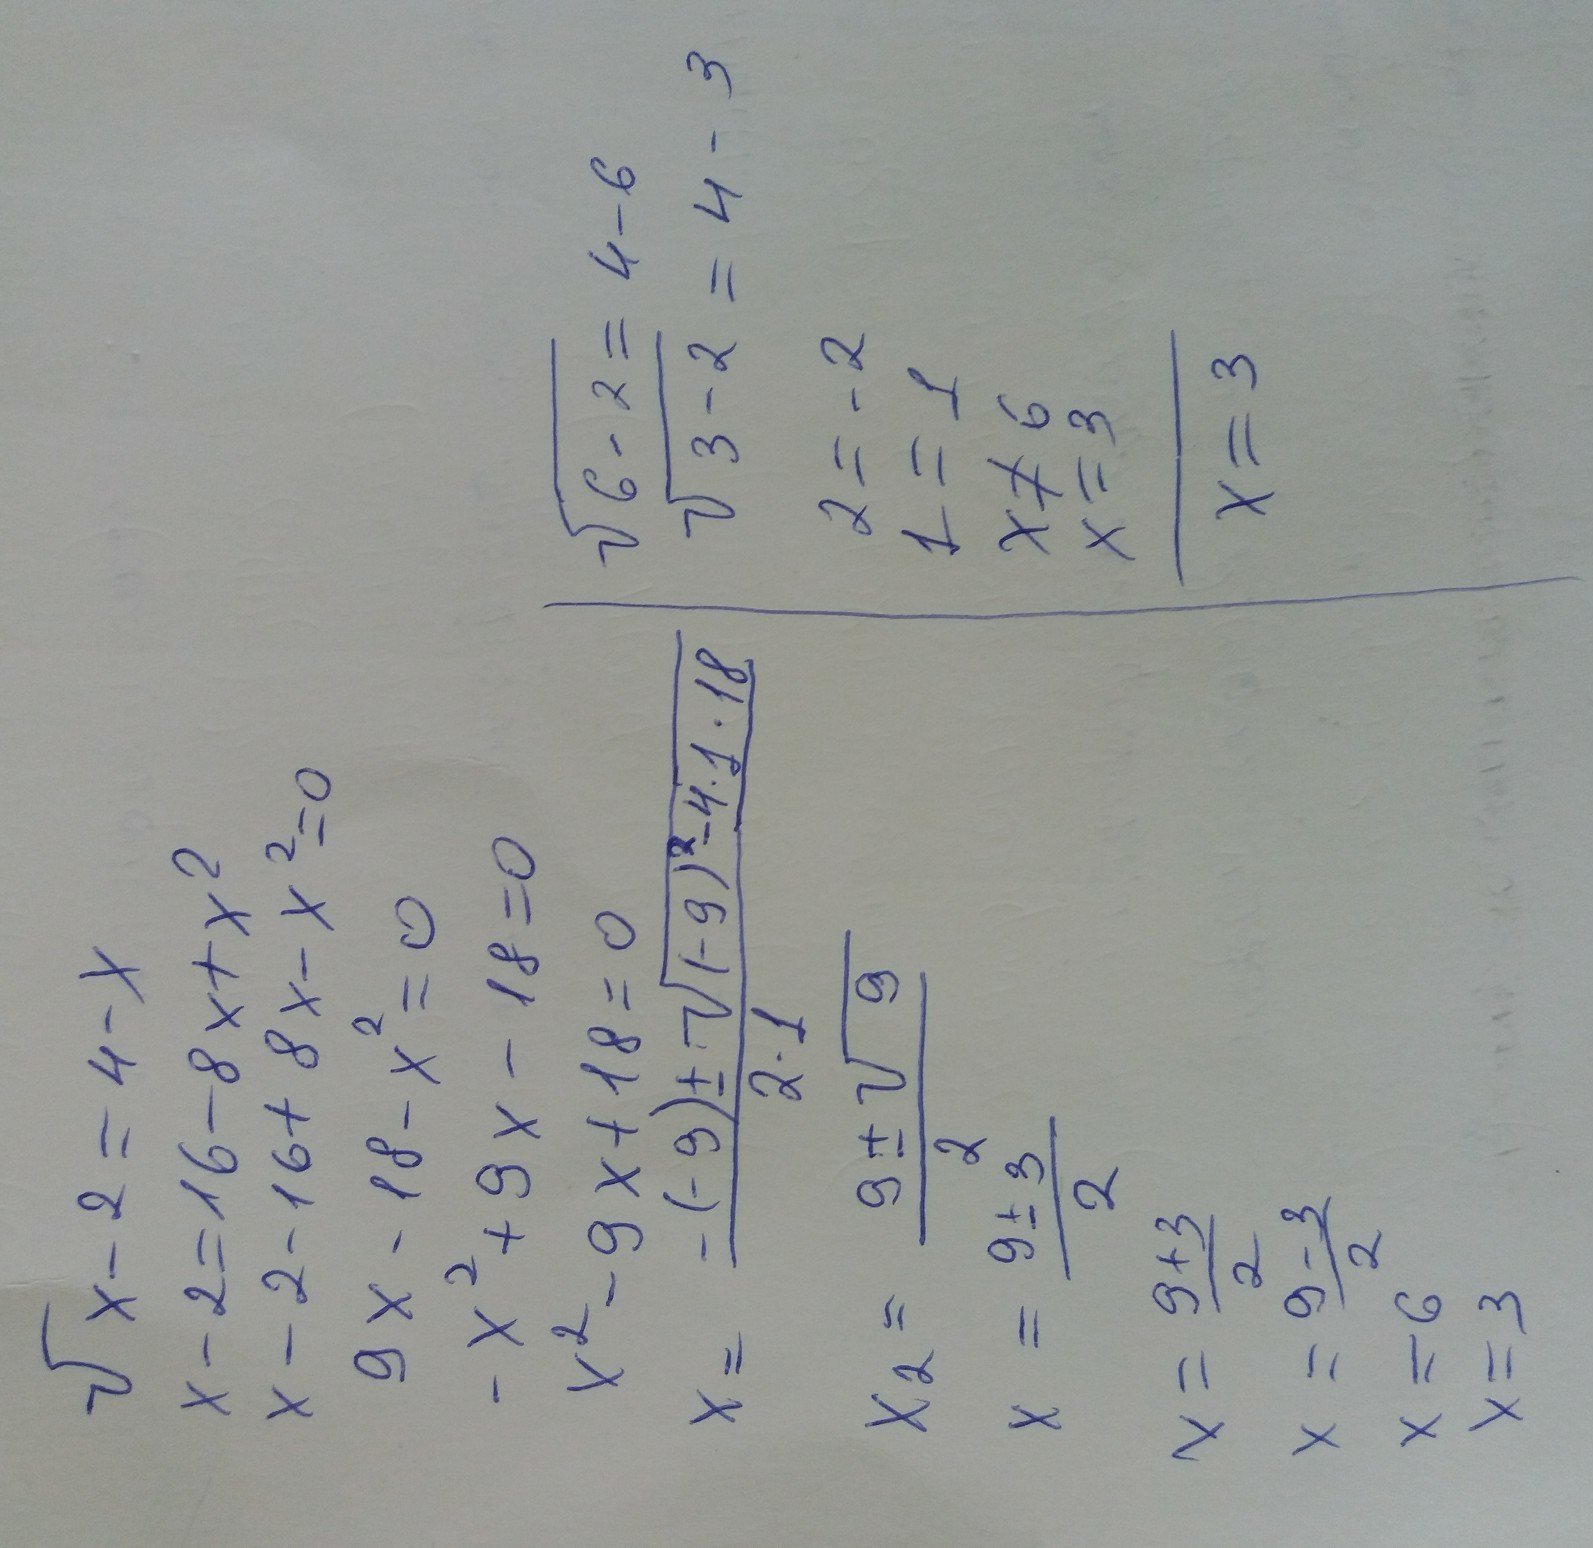 √x-2=4-x
x-2=16-8x+x²
x-2-16+8x-x²=0
9x-18-x²=0
-x²+9x-18=0
x²-9x+18=0
x=-(-9)±√(-9)²-4·1·18
2·1
x2= 9±√9
2
x=9±3
2
x=9+3
2
x=9-3
2
x=6
x=3
√6-2=4-6
√3-2=4-3
2=-2
1=1
x≠6
x=3
x=3